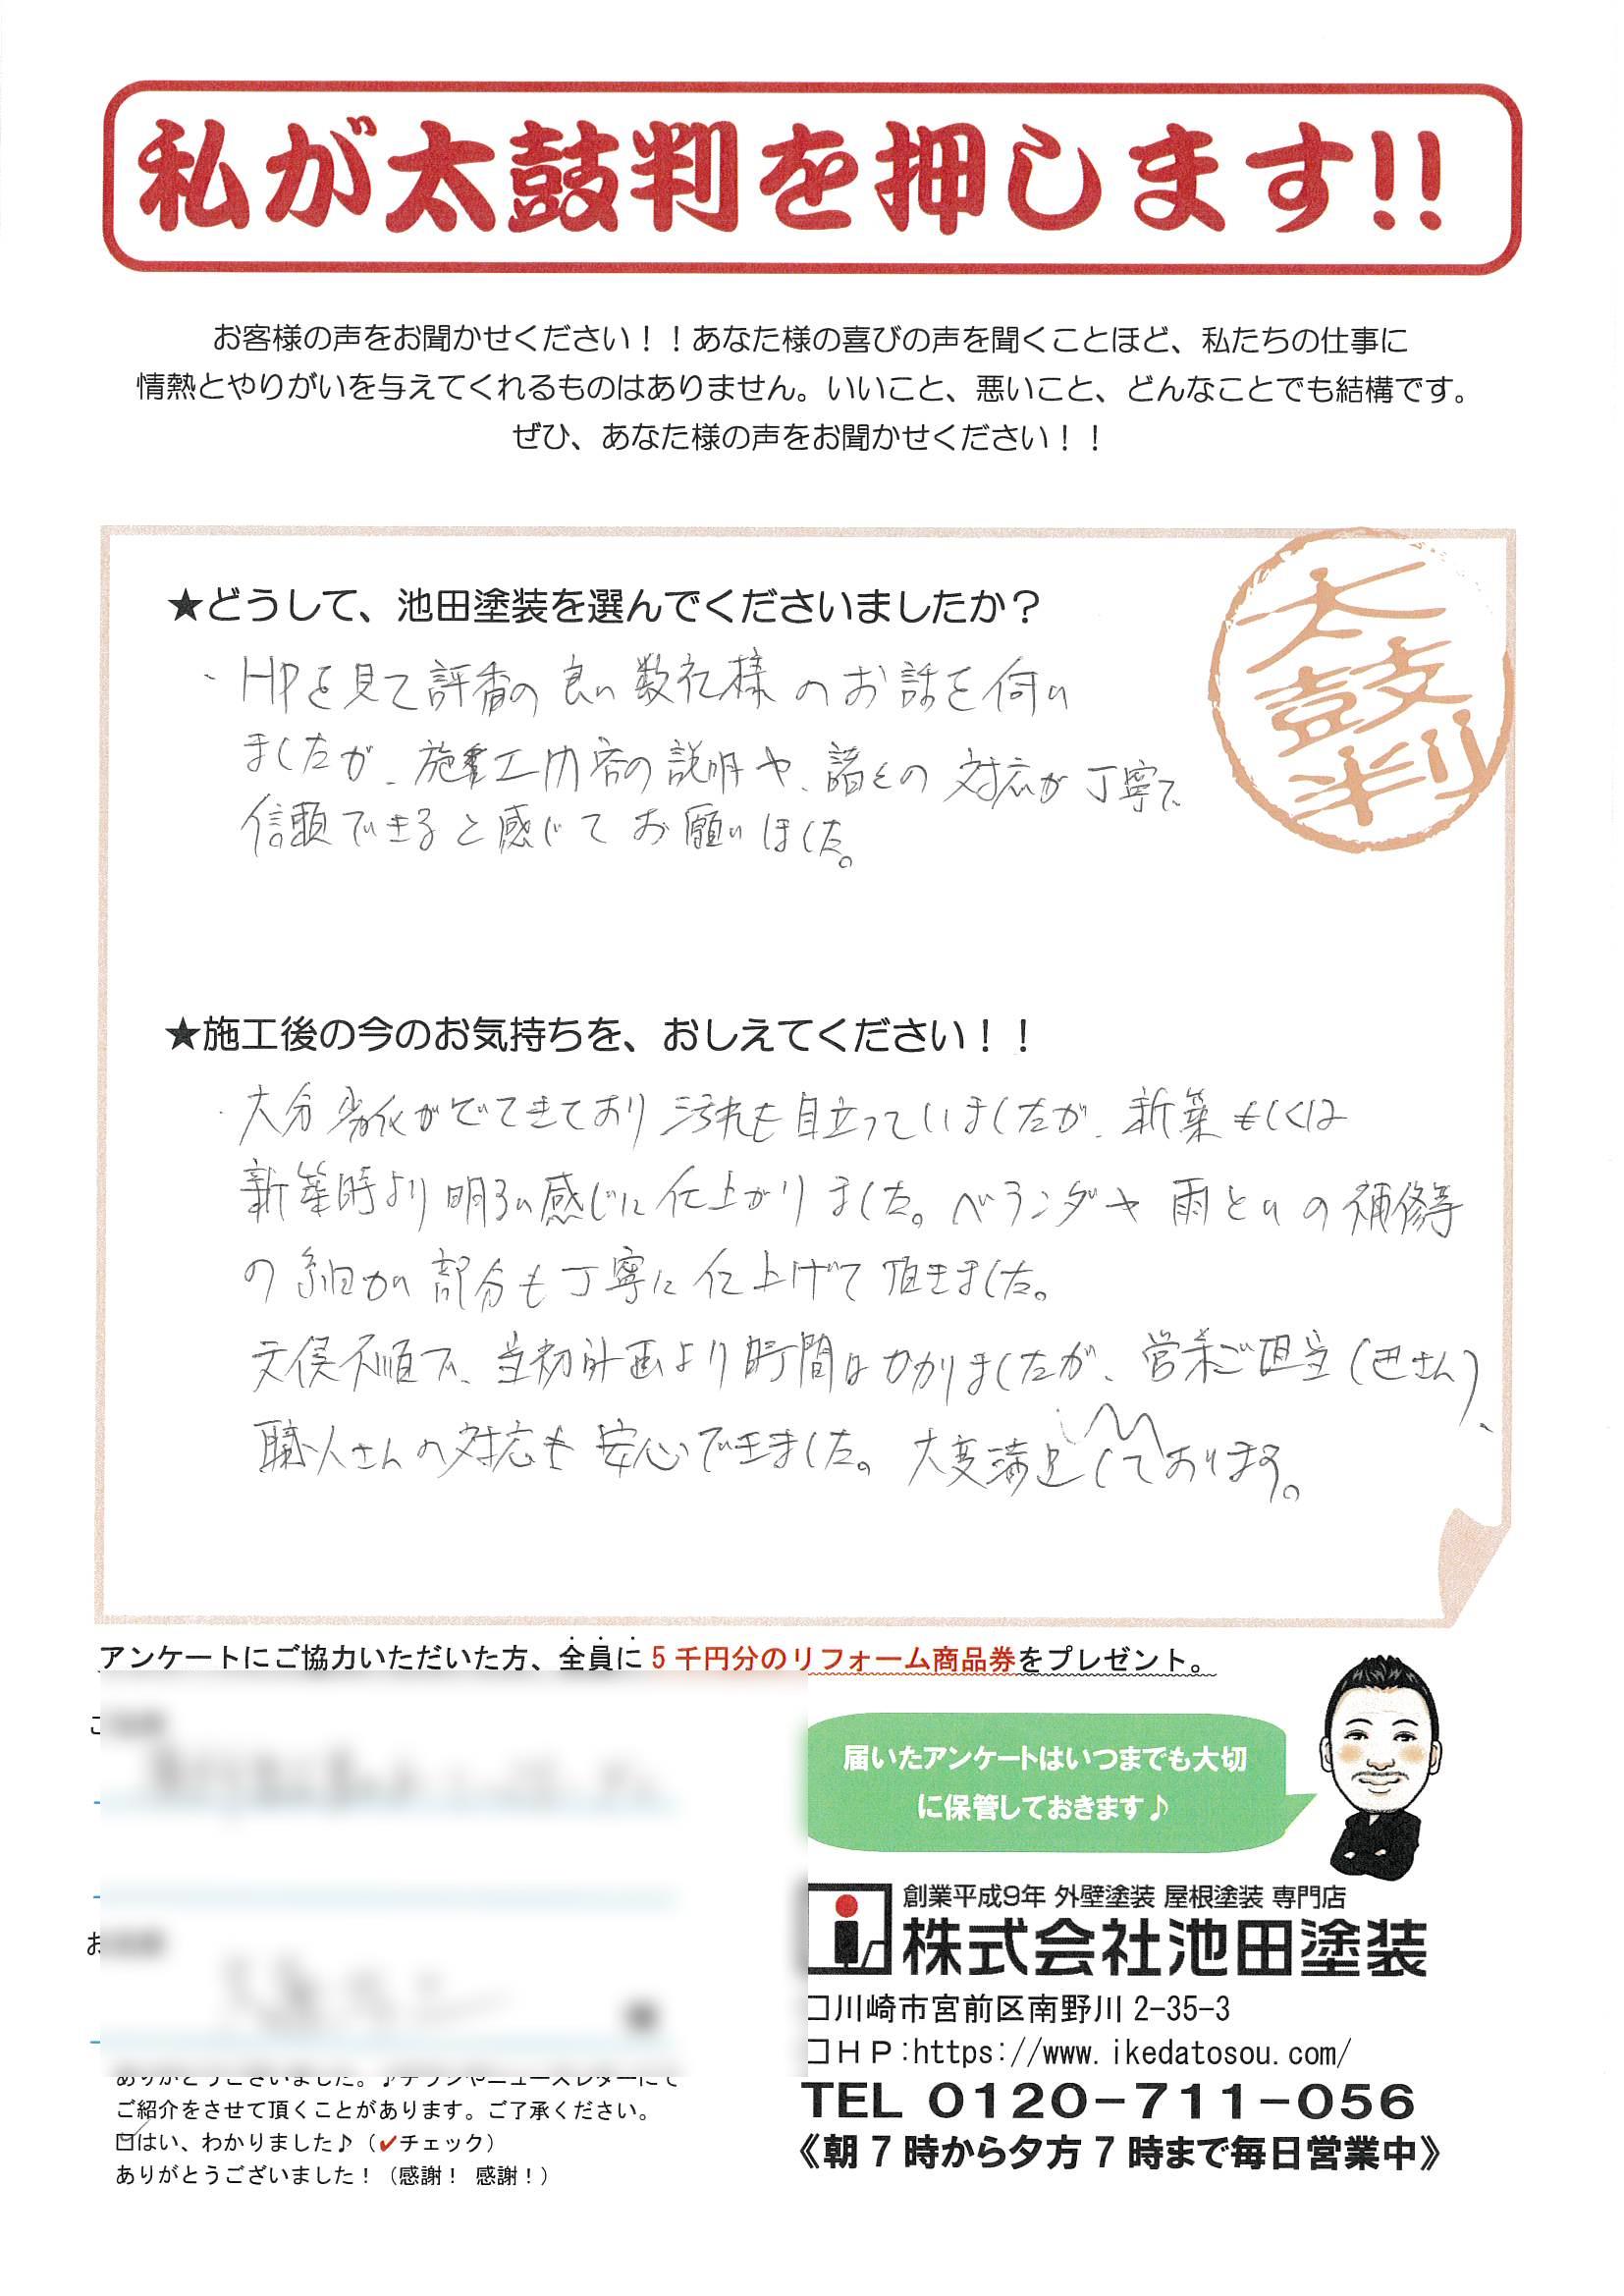 私が太鼓判を押します!!
お客様の声をお聞かせください！！あなた様の喜びの声を聞くことほど、私たちの仕事に
情熱とやりがいを与えてくれるものはありません。いいこと、悪いこと、どんなことでも結構です。
ぜひ、あなた様の声をお聞かせください！！
太鼓判
★どうして、池田塗装を選んでくださいましたか？
・HPを見て評番の良い数社様のお話を伺い
ましたが、施工内容の説明や、諸々の対応が丁寧で
信頼できると感じてお願いしました。
★施工後の今のお気持ちを、おしえてください！！
・大分劣化がでてきており汚れも目立っていましたが、新築もしくは
新築時より明るい感じに仕上がりました。ベランダや雨といの補修等
の細かい部分も丁寧に仕上げて頂きました。
天候不順で、当初計画より時間はかかりましたが、営業ご担当（巴さん）、
職人さんの対応も安心できました。大変満足しております。
アンケートにご協力いただいた方、全員に5千円分のリフォーム商品券をプレゼント。
届いたアンケートはいつまでも大切
に保管しておきます♪
創業平成9年 外壁塗装 屋根塗装 専門店
株式会社池田塗装
□川崎市宮前区南野川2-35-3
□ＨＰ:https://www.ikedatosou.com/
TEL 0120-711-056
《朝7時から夕方7時まで毎日営業中》
ありがとうございました。♪チラシやニュースレターにて
ご紹介をさせて頂くことがあります。ご了承ください。
□はい、わかりました♪（✔チェック）
ありがとうございました！（感謝！ 感謝！）